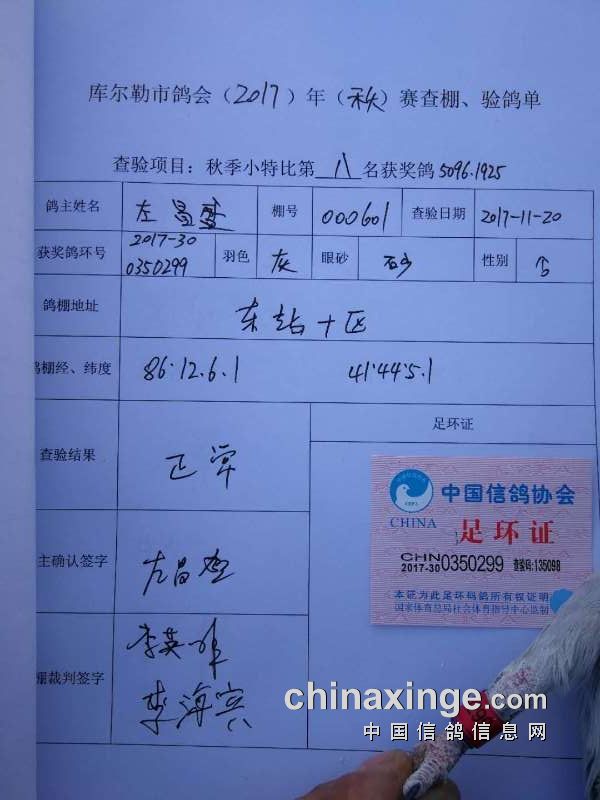 库尔勒市鸽会（2017）年（秋）赛查棚、验鸽单
查验项目：秋季小特比第八名获奖鸽5096.1925
鸽主姓名 左昌 棚号 000601 查验日期 2017-11-20
获奖鸽环号 2017-30 0350299 羽色 灰 眼砂 砂 性别 ♂
鸽棚地址 东站十区
鸽棚经、纬度 86.12.6.1 41.44.5.1
查验结果 正常 足环证
中国信鸽协会
CHINA 足环证
CHN
2017-30 0350299 查验码:135098
本证为此足环码鸽所有权证明
国家体育总局社会体育指导中心监制
主确认签字 左昌
棚裁判签字 李英
李海宾
chinaxinge.com
中国信鸽信息网